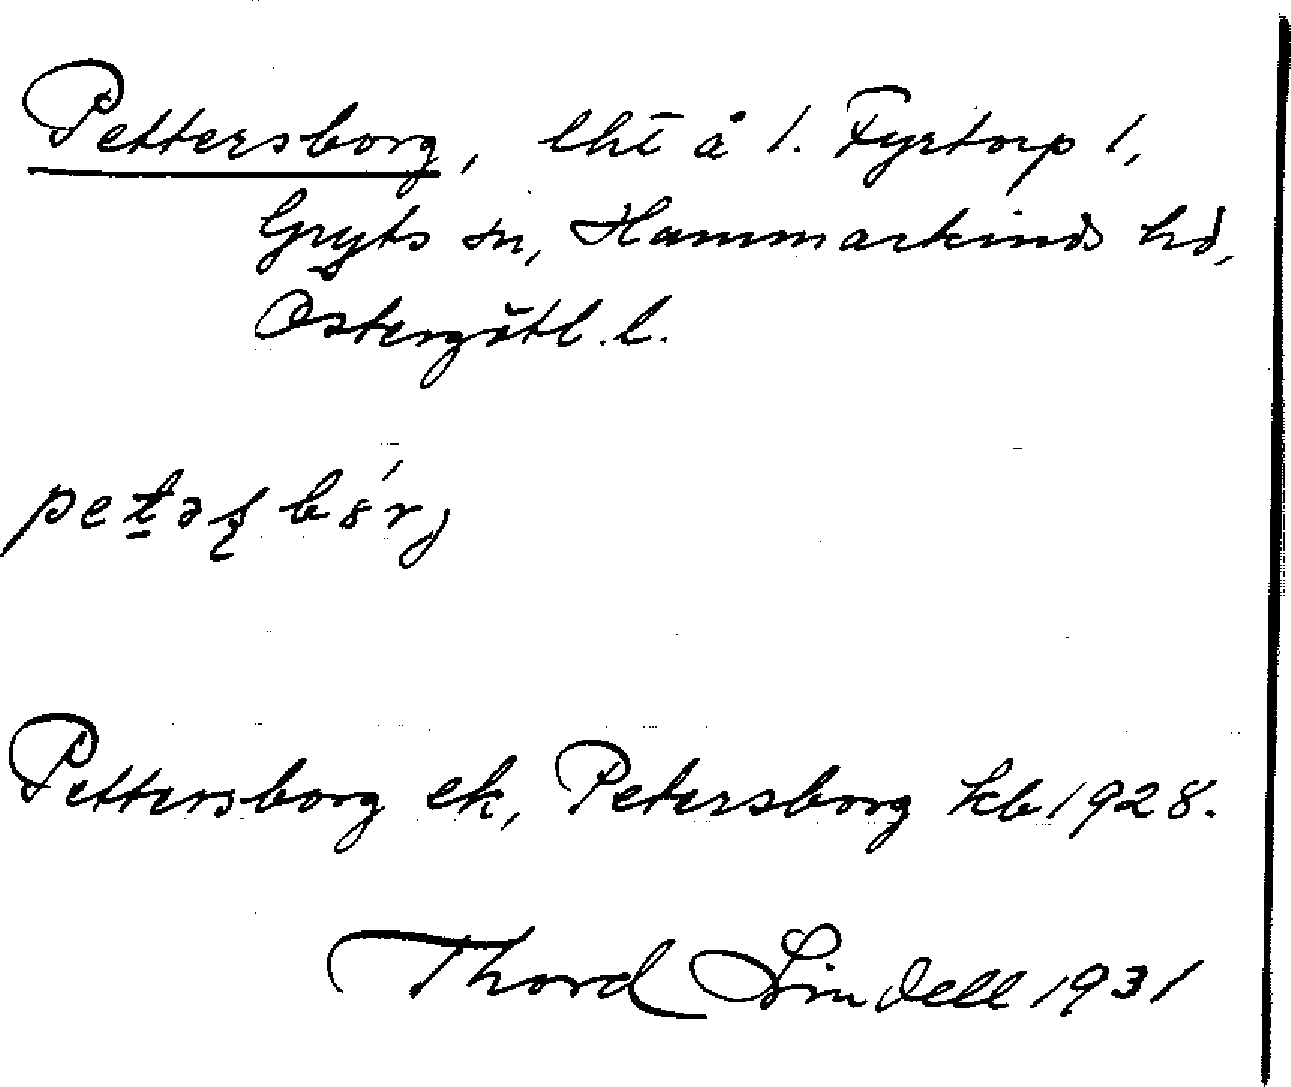 Pettersborg, lht å 1. Fyrtorp 1,
Gryts sn, Hammarkinds hd,
Östergötl. l.
Pettersborg ek, Petersborg kb 1928.
Thord Lindell 1931